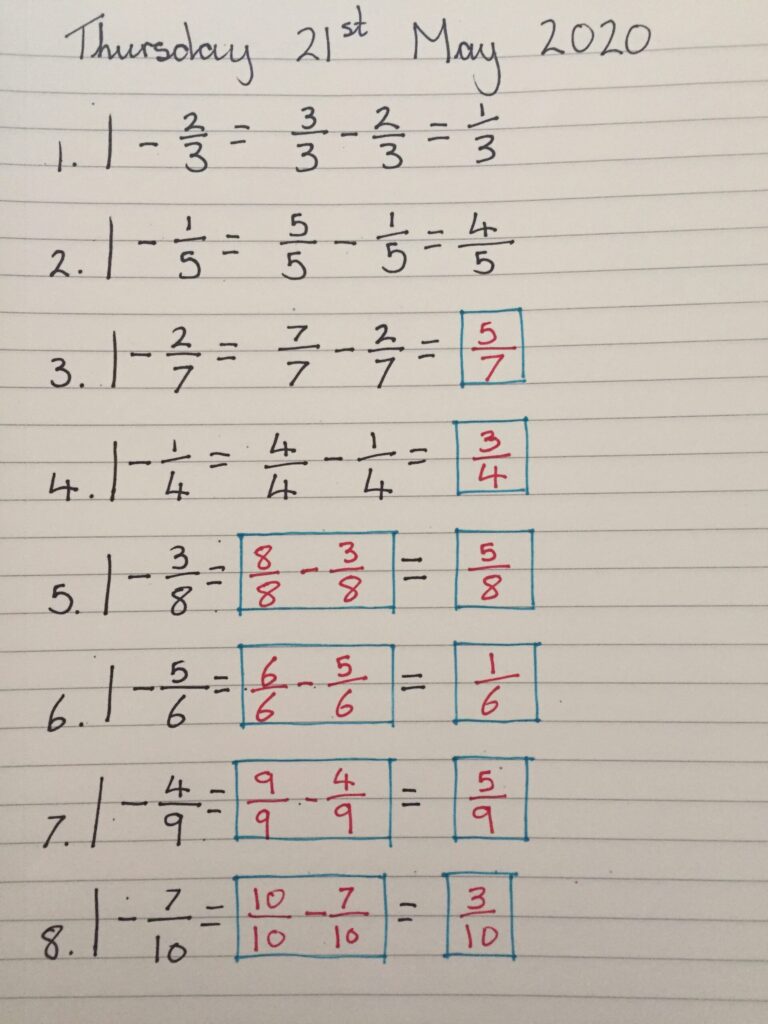 Thursday 21st May 2020
1. 1 - 2/3 = 3/3 - 2/3 = 1/3
2. 1 - 1/5 = 5/5 - 1/5 = 4/5
3. 1 - 2/7 = 7/7 - 2/7 = 5/7
4. 1 - 1/4 = 4/4 - 1/4 = 3/4
5. 1 - 3/8 = 8/8 - 3/8 = 5/8
6. 1 - 5/6 = 6/6 - 5/6 = 1/6
7. 1 - 4/9 = 9/9 - 4/9 = 5/9
8. 1 - 7/10 = 10/10 - 7/10 = 3/10